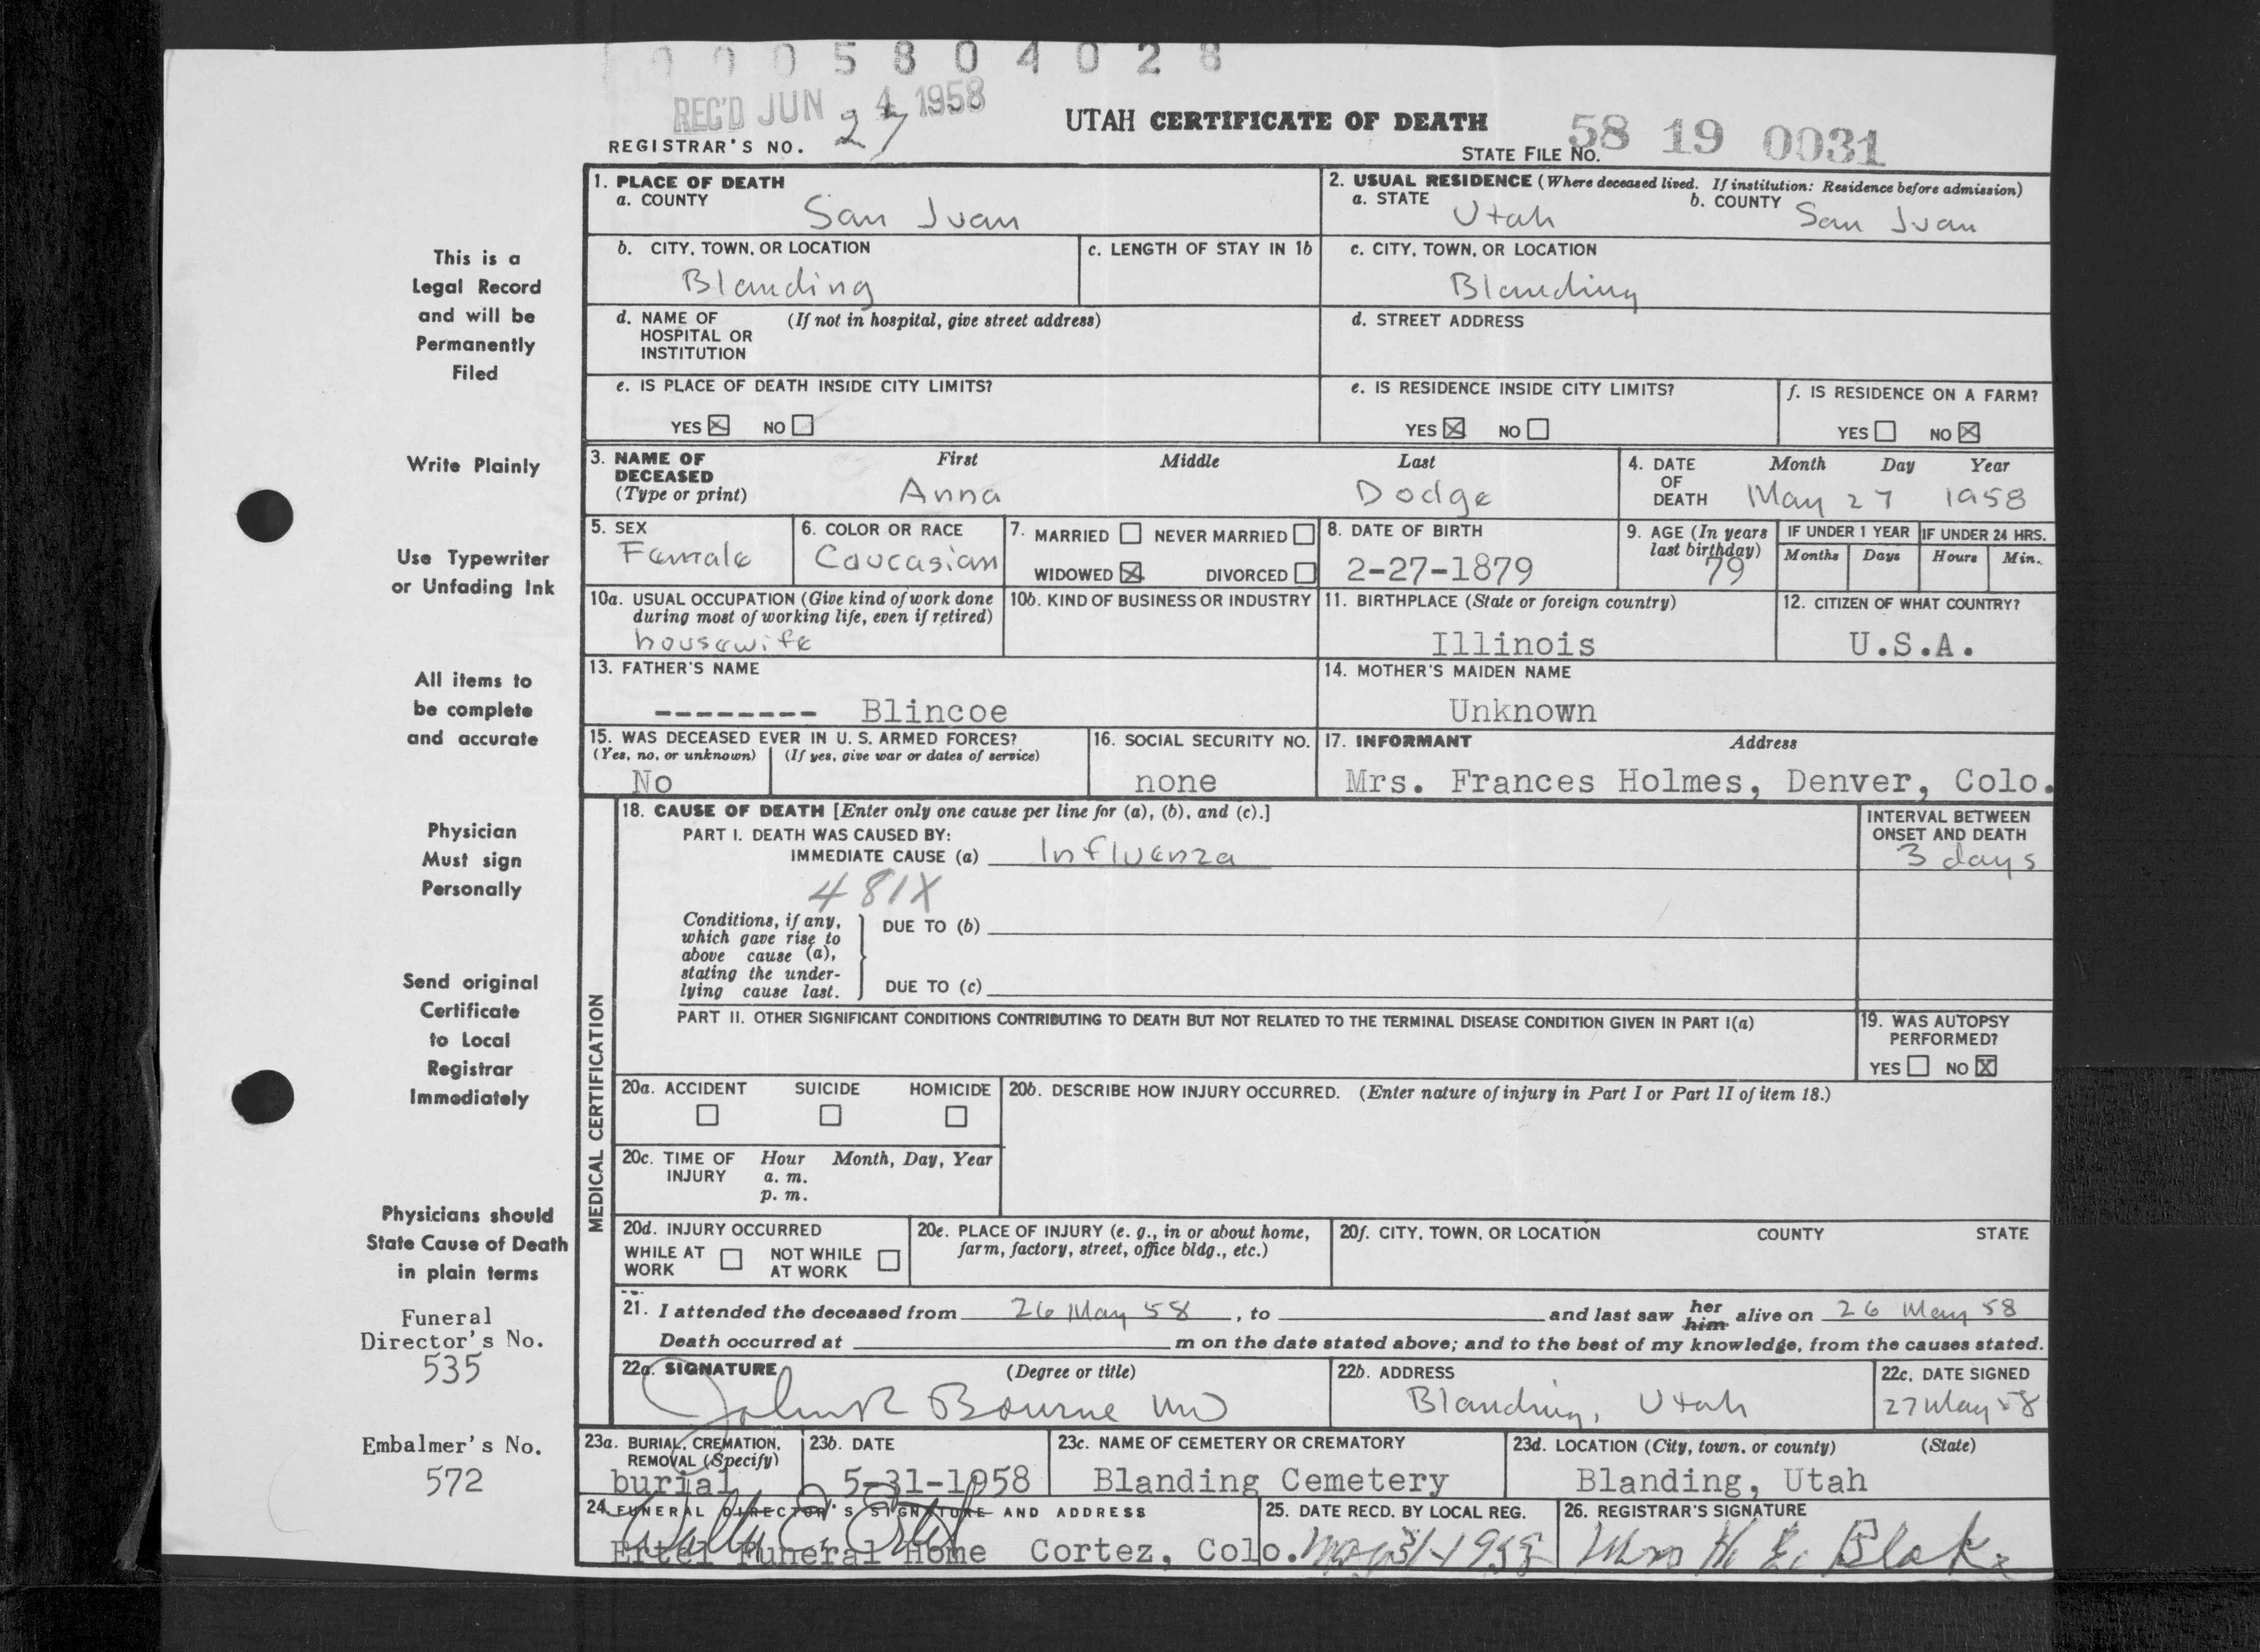 0 0 0 5 8 0 4 0 2 8
REC'D JUN 4 1958
REGISTRAR'S NO. 27
UTAH CERTIFICATE OF DEATH
STATE FILE NO. 58 19 0031
This is a
Legal Record
and will be
Permanently
Filed
Write Plainly
Use Typewriter
or Unfading Ink
All items to
be complete
and accurate
Physician
Must sign
Personally
Send original
Certificate
to Local
Registrar
Immediately
Physicians should
State Cause of Death
in plain terms
Funeral
Director's No.
535
Embalmer's No.
572
1. PLACE OF DEATH
a. COUNTY San Juan
2. USUAL RESIDENCE (Where deceased lived. If institution: Residence before admission)
a. STATE Utah b. COUNTY San Juan
b. CITY, TOWN, OR LOCATION
Blanding
c. LENGTH OF STAY IN 1b
c. CITY, TOWN, OR LOCATION
Blanding
d. NAME OF (If not in hospital, give street address)
HOSPITAL OR
INSTITUTION
d. STREET ADDRESS
e. IS PLACE OF DEATH INSIDE CITY LIMITS?
YES ☒ NO ☐
e. IS RESIDENCE INSIDE CITY LIMITS?
YES ☒ NO ☐
f. IS RESIDENCE ON A FARM?
YES ☐ NO ☒
3. NAME OF DECEASED (Type or print)
First Middle Last
Anna Dodge
4. DATE OF DEATH
Month Day Year
May 27 1958
5. SEX
Female
6. COLOR OR RACE
Caucasian
7. MARRIED ☐ NEVER MARRIED ☐
WIDOWED ☒ DIVORCED ☐
8. DATE OF BIRTH
2-27-1879
9. AGE (In years last birthday)
79
IF UNDER 1 YEAR
Months Days
IF UNDER 24 HRS.
Hours Min.
10a. USUAL OCCUPATION (Give kind of work done
during most of working life, even if retired)
housewife
10b. KIND OF BUSINESS OR INDUSTRY
11. BIRTHPLACE (State or foreign country)
Illinois
12. CITIZEN OF WHAT COUNTRY?
U.S.A.
13. FATHER'S NAME
-------- Blincoe
14. MOTHER'S MAIDEN NAME
Unknown
15. WAS DECEASED EVER IN U. S. ARMED FORCES?
(Yes, no, or unknown) (If yes, give war or dates of service)
No
16. SOCIAL SECURITY NO.
none
17. INFORMANT Address
Mrs. Frances Holmes, Denver, Colo.
MEDICAL CERTIFICATION
18. CAUSE OF DEATH [Enter only one cause per line for (a), (b), and (c).]
PART I. DEATH WAS CAUSED BY:
IMMEDIATE CAUSE (a) Influenza
INTERVAL BETWEEN
ONSET AND DEATH
3 days
481X
Conditions, if any,
which gave rise to
above cause (a),
stating the under-
lying cause last.
DUE TO (b)
DUE TO (c)
PART II. OTHER SIGNIFICANT CONDITIONS CONTRIBUTING TO DEATH BUT NOT RELATED TO THE TERMINAL DISEASE CONDITION GIVEN IN PART I(a)
19. WAS AUTOPSY
PERFORMED?
YES ☐ NO ☒
20a. ACCIDENT SUICIDE HOMICIDE
☐ ☐ ☐
20b. DESCRIBE HOW INJURY OCCURRED. (Enter nature of injury in Part I or Part II of item 18.)
20c. TIME OF INJURY
Hour Month, Day, Year
a. m.
p. m.
20d. INJURY OCCURRED
WHILE AT WORK ☐ NOT WHILE AT WORK ☐
20e. PLACE OF INJURY (e. g., in or about home,
farm, factory, street, office bldg., etc.)
20f. CITY, TOWN, OR LOCATION COUNTY STATE
21. I attended the deceased from 26 May 58, to and last saw her him alive on 26 May 58
Death occurred at m on the date stated above; and to the best of my knowledge, from the causes stated.
22a. SIGNATURE (Degree or title)
John R Bourne MD
22b. ADDRESS
Blanding, Utah
22c. DATE SIGNED
27 May 58
23a. BURIAL, CREMATION,
REMOVAL (Specify)
burial
23b. DATE
5-31-1958
23c. NAME OF CEMETERY OR CREMATORY
Blanding Cemetery
23d. LOCATION (City, town, or county) (State)
Blanding, Utah
24. FUNERAL DIRECTOR'S SIGNATURE AND ADDRESS
Ertel Funeral Home Cortez, Colo.
25. DATE RECD. BY LOCAL REG.
May 31-1958
26. REGISTRAR'S SIGNATURE
Mrs H. E. Blake